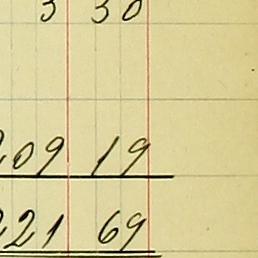 3 30
209 19
221 69